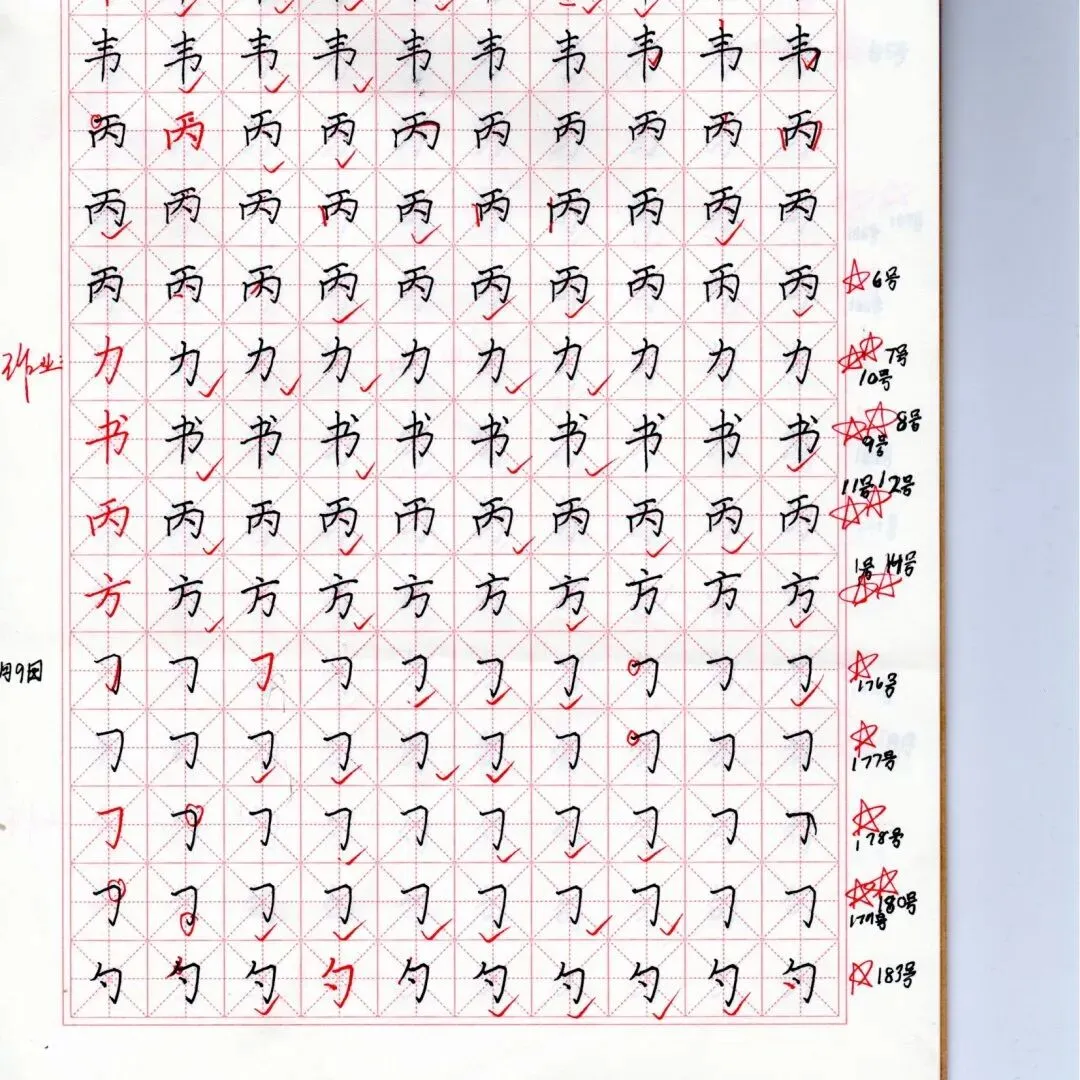 韦韦韦韦韦韦韦韦韦韦
丙丙丙丙丙丙丙丙丙丙
丙丙丙丙丙丙丙丙丙丙
丙丙丙丙丙丙丙丙丙丙 6号
作业: 力力力力力力力力力力 7号
10号
书书书书书书书书书书 8号
9号
11号 12号
丙丙丙丙丙丙丙丙丙丙
1号 14号
方方方方方方方方方方
月9日 𠃌𠃌𠃌𠃌𠃌𠃌𠃌𠃌𠃌𠃌 176号
𠃌𠃌𠃌𠃌𠃌𠃌𠃌𠃌𠃌𠃌 177号
𠃌𠃌𠃌𠃌𠃌𠃌𠃌𠃌𠃌𠃌 178号
𠃌𠃌𠃌𠃌𠃌𠃌𠃌𠃌𠃌𠃌 180号
勺勺勺勺勺勺勺勺勺勺 183号